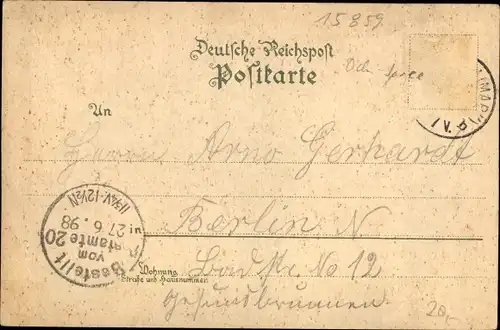 15859
Deutsche Reichspost
Postkarte
An
Herrn Arno Gerhardt
in Berlin N
Wohnung
Straße und Hausnummer
Bad Str. No 12
Gesundbrunnen
Bestellt
vom
Postamte 20
27.6.98
11¾V-12½N
20,-